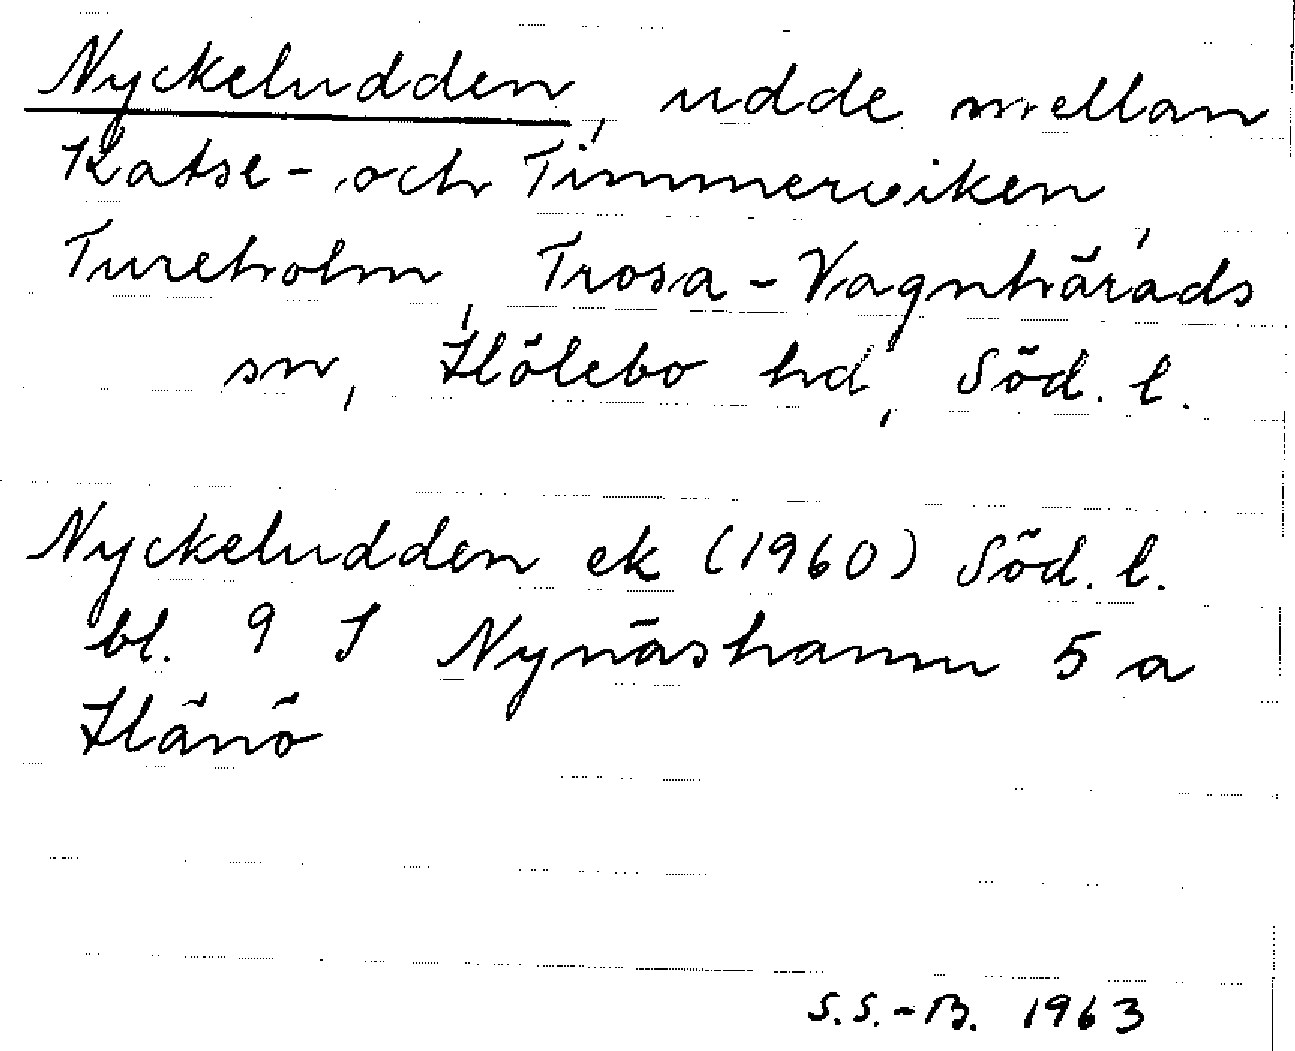 Nyckeludden, udde mellan
Katse- och Timmerviken,
Tureholm, Trosa-Vagnhärads
sn, Hölebo hd, Söd. l.
Nyckeludden ek (1960) Söd. l.
bl. 9 I Nynäshamn 5 a
Hänö
S.S.-B. 1963